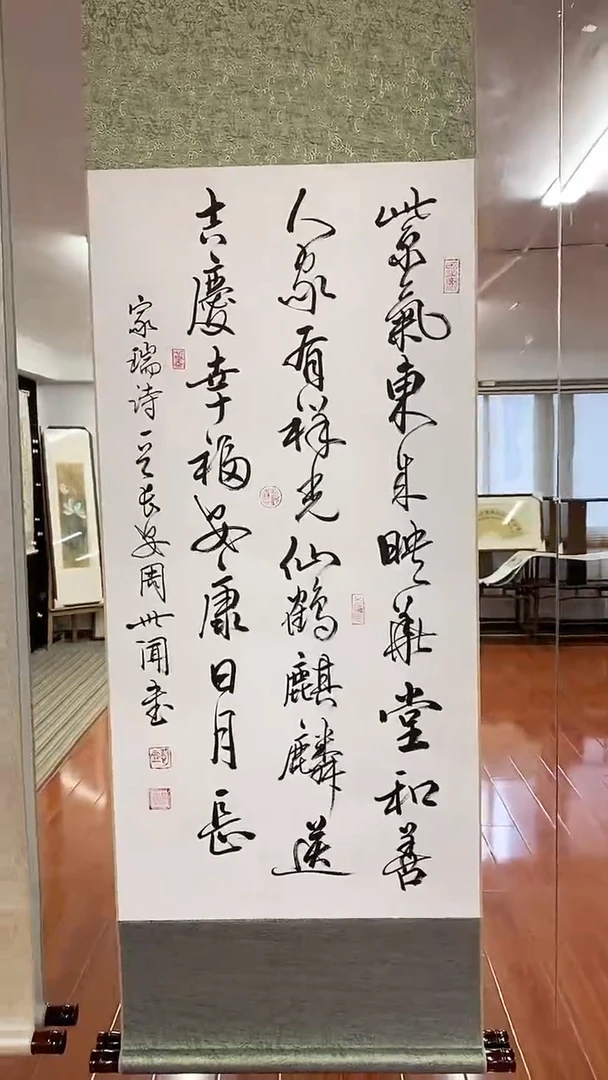 紫氣東来映華堂和善
人家有祥光仙鶴麒麟送
吉慶幸福安康日月長
家瑞诗一首长安周世闻书